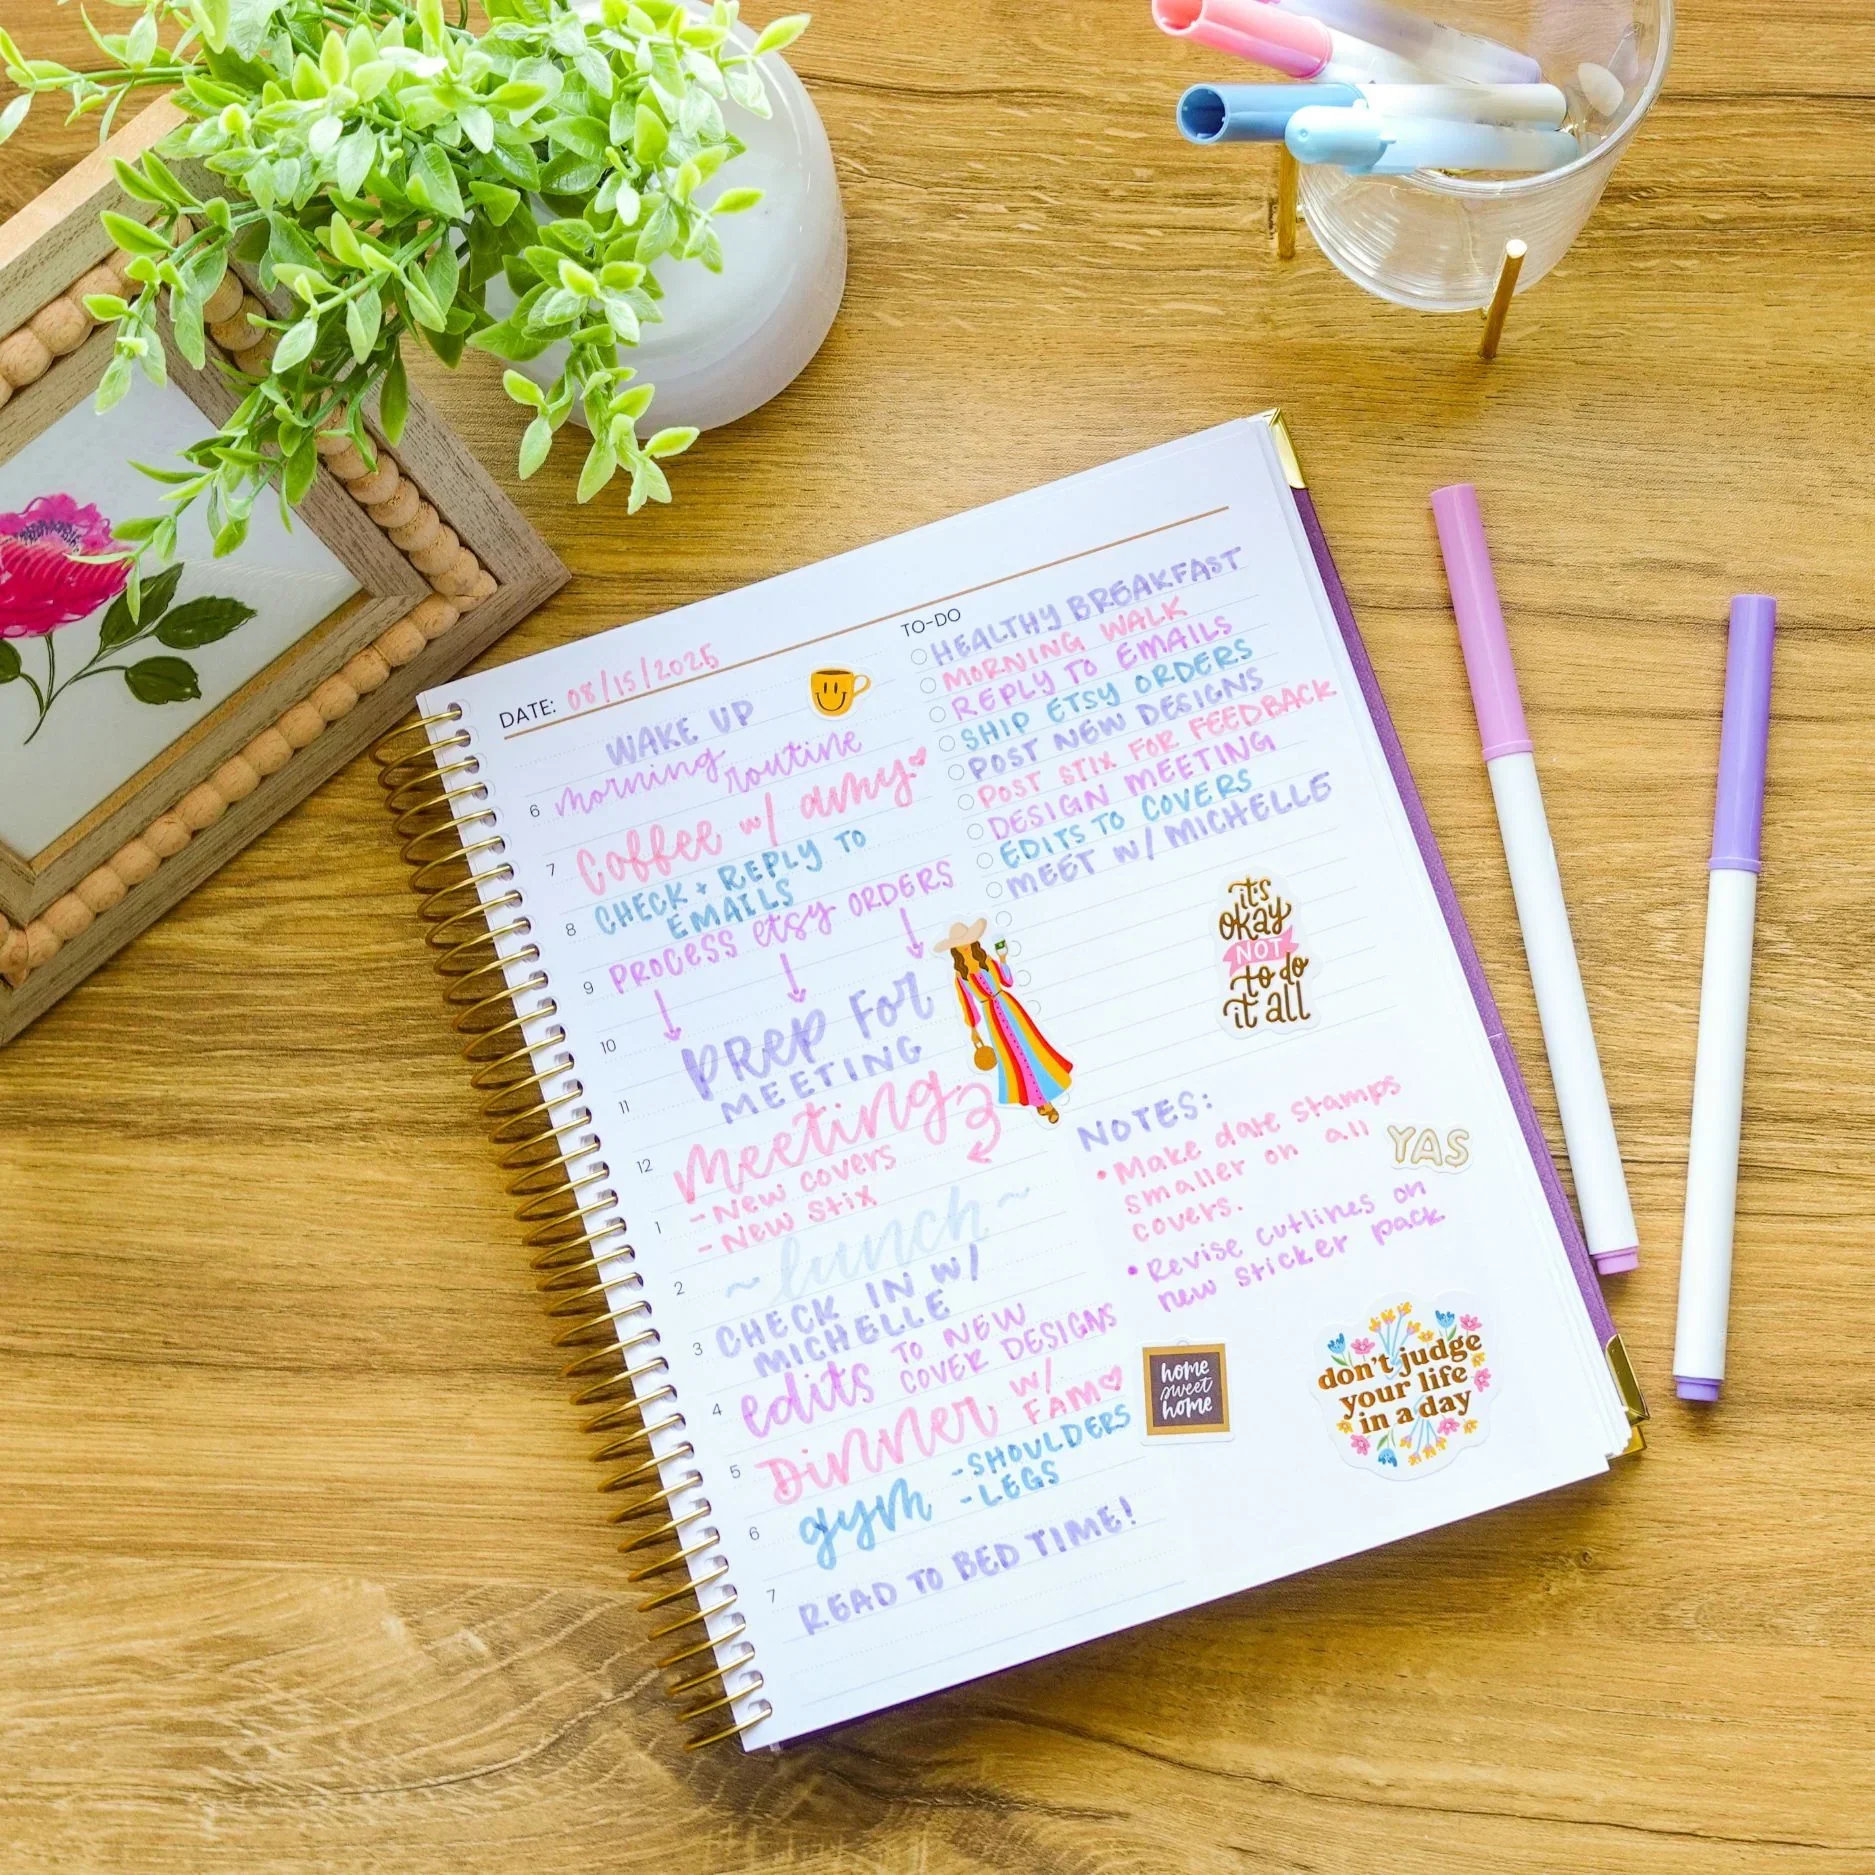 DATE: 08/15/2025
WAKE UP
6 morning routine
7 Coffee w/ amy
CHECK + REPLY TO
8 EMAILS
9 PROCESS etsy ORDERS
10 PREP For
11 MEETING
12 Meeting
- New covers
1 - New stix
2 ~ lunch ~
CHECK IN W/
3 MICHELLE
4 edits TO NEW
COVER DESIGNS
5 Dinner w/
FAM
6 gym - SHOULDERS
- LEGS
7 READ TO BED TIME!
TO-DO
HEALTHY BREAKFAST
MORNING WALK
REPLY TO EMAILS
SHIP ETSY ORDERS
POST NEW DESIGNS
POST STIX FOR FEEDBACK
DESIGN MEETING
EDITS TO COVERS
MEET W/ MICHELLE
it's
okay
NOT
to do
it all
NOTES:
• Make date stamps
smaller on all
covers.
• Revise cutlines on
new sticker pack
YAS
home
sweet
home
don't judge
your life
in a day